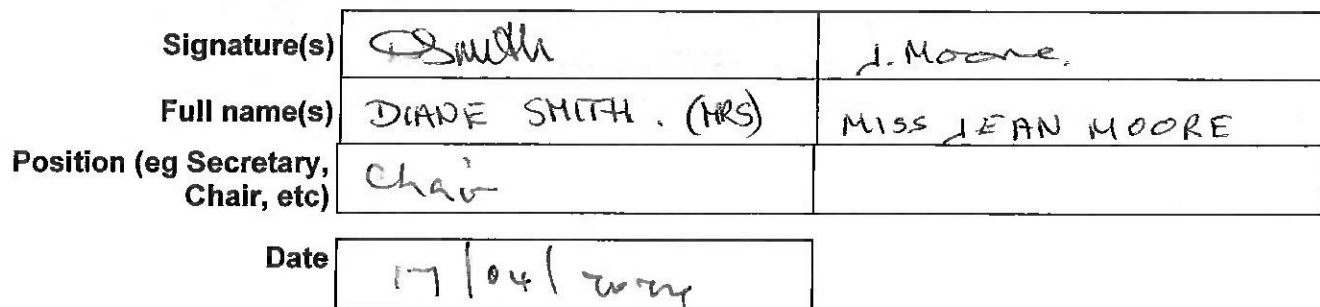 Signature(s) DSmith J. Moore.
Full name(s) DIANE SMITH. (MRS) MISS JEAN MOORE
Position (eg Secretary,
Chair, etc) Chair
Date 17/04/2024